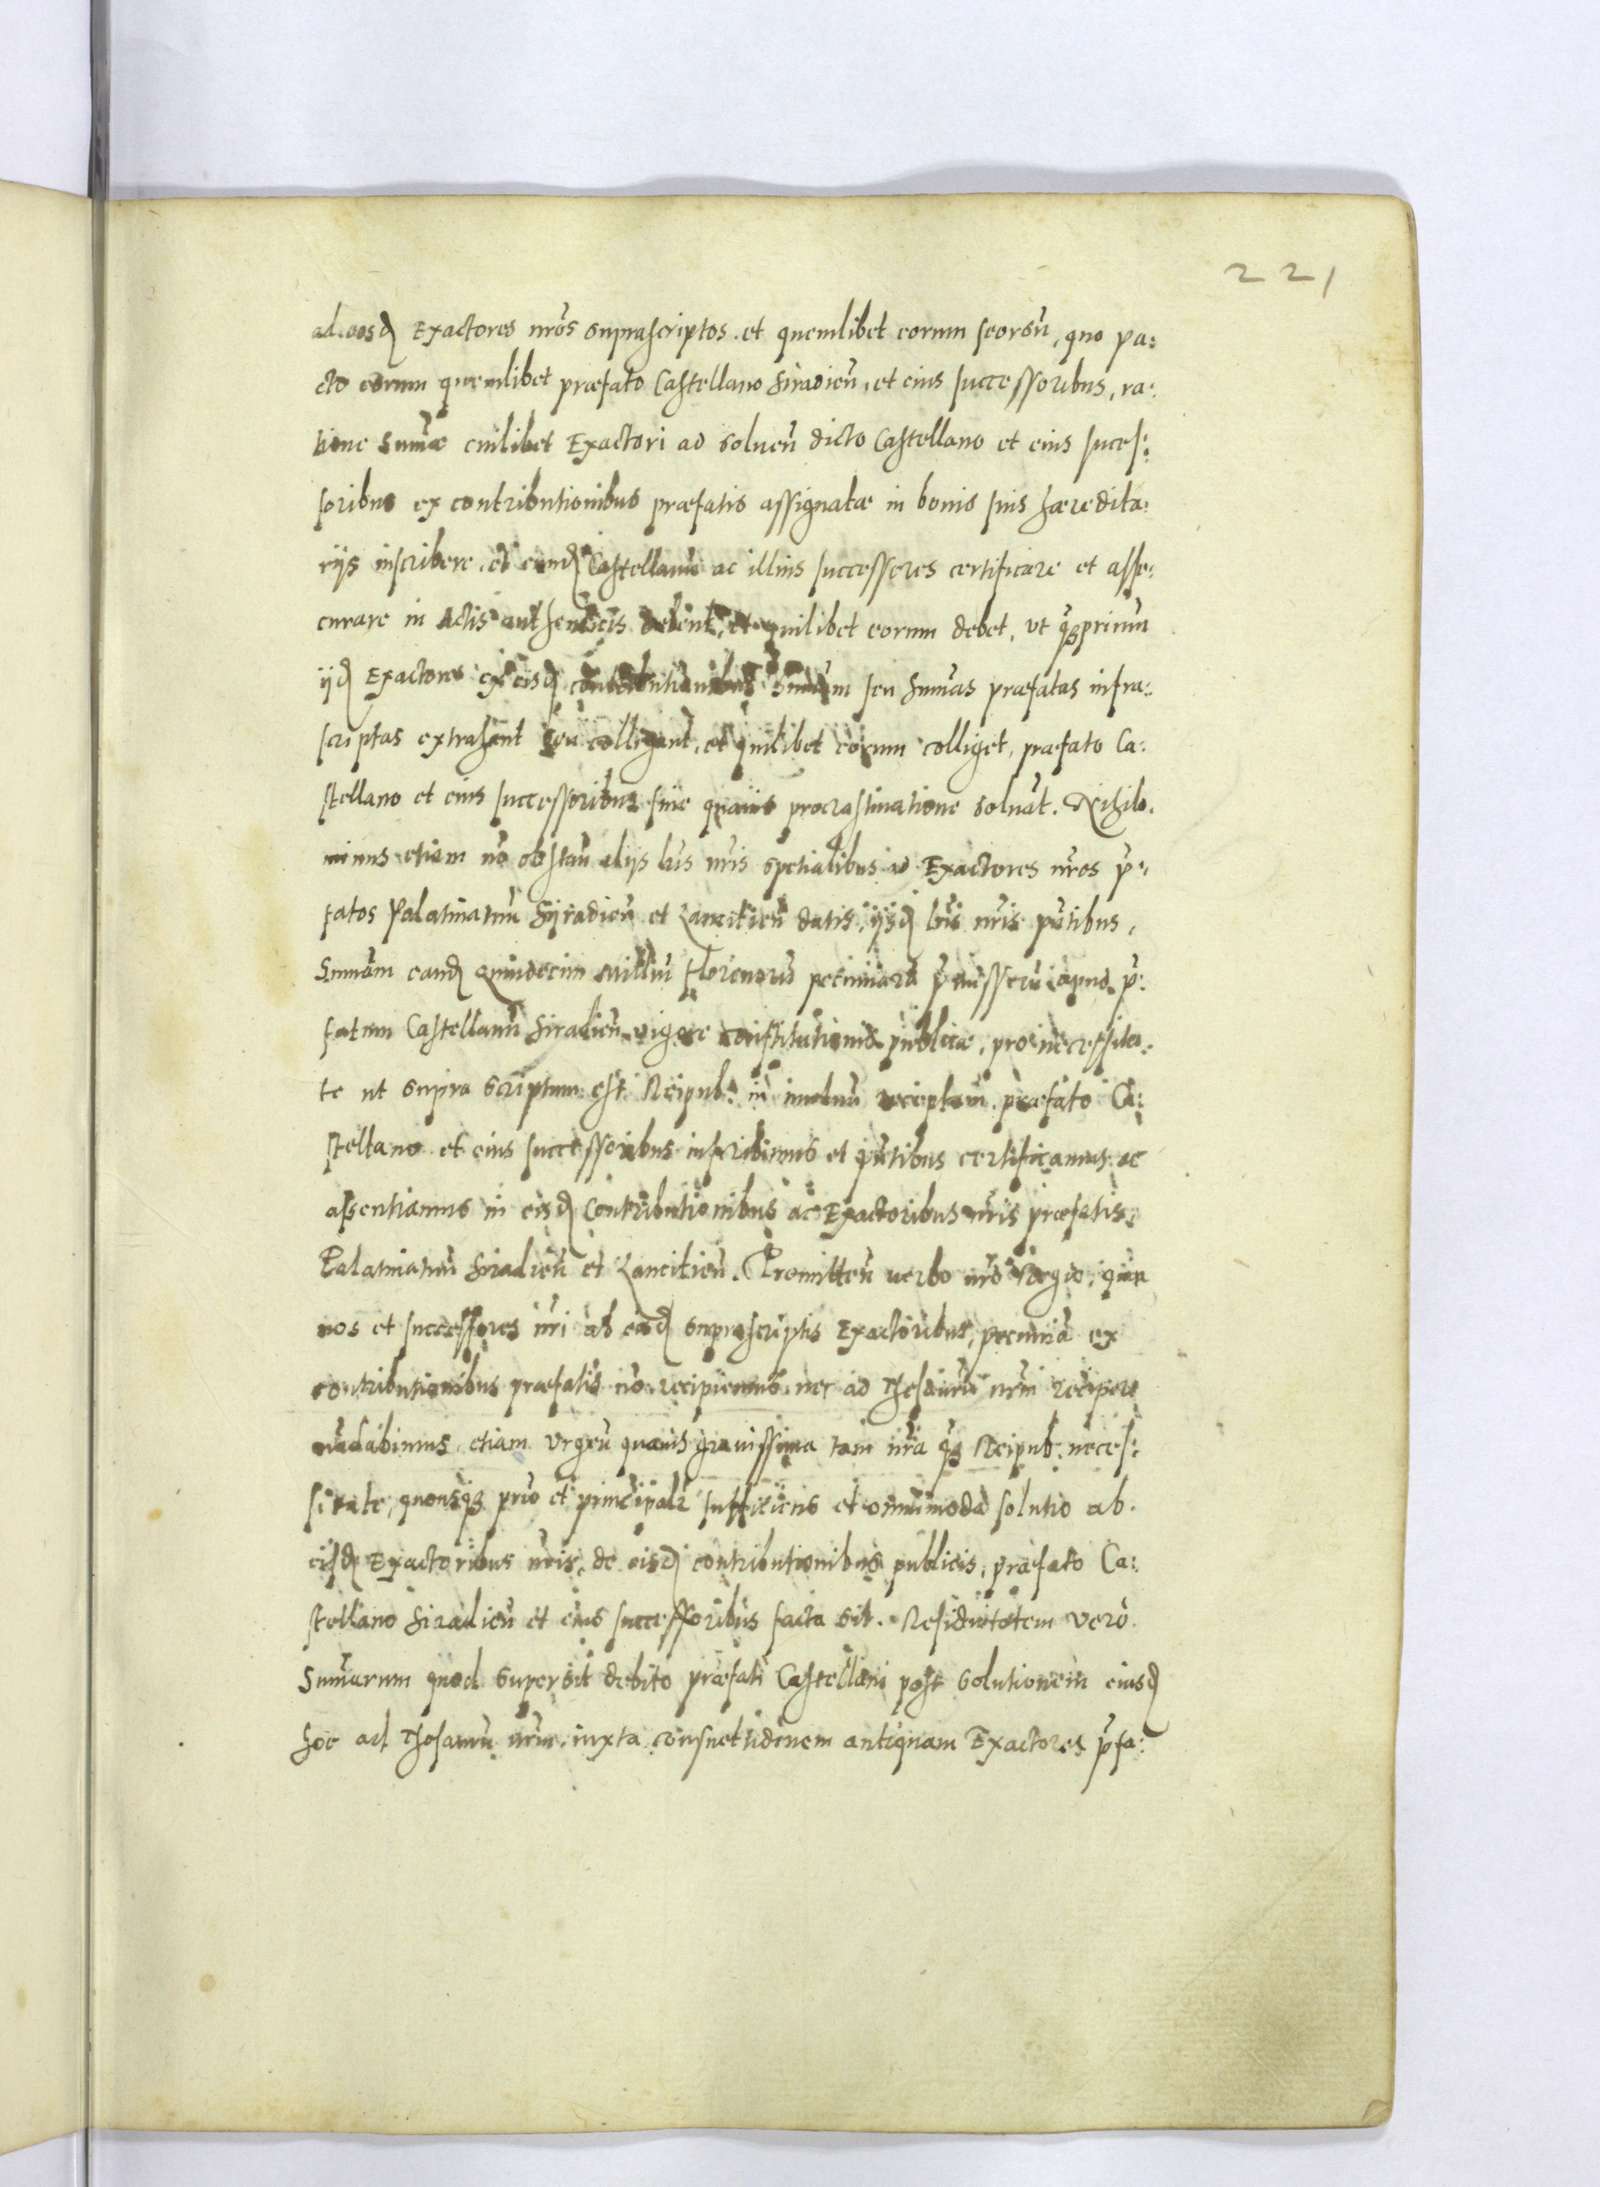 221
ad eosđ Exactores nr̃os suprascriptos et quemlibet eorum seorsũ, quo pa:
cto eorum quemlibet præfato Castellano Siradieñ, et eius successoribus, ra:
tione Sum̃æ cuilibet Exactori ad solueñ dicto Castellano et eius succes:
soribus ex contributionibus præfatis assignatæ in bonis suis hæredita:
rijs inscribere, et eumđ Castellanũ ac illius successores certificare et asse:
curare in Actis authenticis debent, et quilibet eorum debet, ut q̃ꝫprimum
ijđ Exactores ex eisđ contributionibus Sum̃am seu Sum̃as præfatas infra:
scriptas extrahent seu colligent, et quilibet eorum colliget, præfato Ca:
stellano et eius successoribus sine quauis procrastinatione soluãt. Nihilo.
minus etiam nõ obstañ alijs lr̃is nr̃is spetialibus ad Exactores nr̃os p̃:
fatos Palatinatuũ Syradieñ et Lancitieñ datis, ijsđ lr̃is nr̃is pñtibus,
Sum̃am eanđ Quindecim Milliũ Florenorũ pecuniarũ p̃missarũ apud p̃:
fatum Castellanũ Siradieñ vigore constitutionis publicæ, pro necessita:
te ut supra scriptum est Reipub: in mutuũ receptam præfato Ca:
stellano et eius successoribus inscribimus et pñtibus certificamus ac
assentiamus in eisđ Contributionibus ac Exactoribus nr̃is præfatis
Palatinatuũ Siradieñ et Lancitieñ. Promitteñ verbo nr̃o Regio, quia
nos et successores nr̃i ab eisđ suprascriptis Exactoribus, pecuniã ex
contributionibus præfatis nõ recipiemus, nec ad Thesaurũ nr̃m recipere
mãdabimus, etiam Urgeñ quauis grauissima tam nr̃a q̃ꝫ Reipub: neces:
sitate, quousqꝫ prius et principalr̃ sufficiens et omnimoda solutio ab
eisđ Exactoribus nr̃is, de eisđ contributionibus publicis, præfato Ca:
stellano Siradieñ et eius successoribus facta sit. Residuitatem vero
Sum̃arum quod supersit debito præfati Castellani post solutionem eiusđ
hoc ad Thesaurũ nr̃m iuxta consuetudinem antiquam Exactores p̃fa: